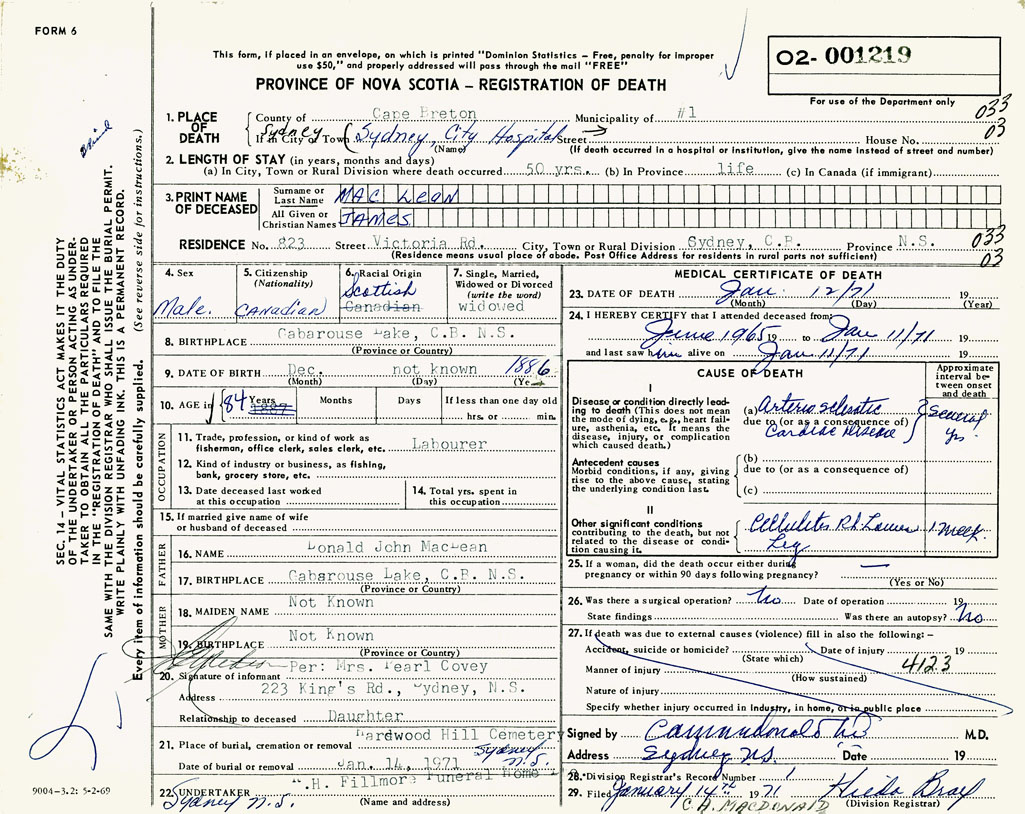 FORM 6
This form, if placed in an envelope, on which is printed "Dominion Statistics – Free, penalty for improper
use $50," and properly addressed will pass through the mail "FREE"
PROVINCE OF NOVA SCOTIA – REGISTRATION OF DEATH
02- 001219
For use of the Department only
033
03
1. PLACE OF DEATH
County of Cape Breton Municipality of #1
If in City or Town Sydney (Sydney, City Hospital Street House No.
(Name) (If death occurred in a hospital or institution, give the name instead of street and number)
2. LENGTH OF STAY (in years, months and days)
(a) In City, Town or Rural Division where death occurred 50 yrs. (b) In Province life (c) In Canada (if immigrant)
3. PRINT NAME OF DECEASED
Surname or Last Name MAC LEAN
All Given or Christian Names JAMES
RESIDENCE No. 823 Street Victoria Rd. City, Town or Rural Division Sydney, C.B. Province N.S.
(Residence means usual place of abode. Post Office Address for residents in rural parts not sufficient)
033
03
4. Sex
Male.
5. Citizenship (Nationality)
Canadian
6. Racial Origin
Scottish
Canadian
7. Single, Married, Widowed or Divorced (write the word)
widowed
8. BIRTHPLACE Gabarouse Lake, C.B. N.S.
(Province or Country)
9. DATE OF BIRTH Dec. not known 1886
(Month) (Day) (Year)
10. AGE in 84 Years 1887 Months Days If less than one day old
hrs. or min.
OCCUPATION
11. Trade, profession, or kind of work as
fisherman, office clerk, sales clerk, etc. Labourer
12. Kind of industry or business, as fishing,
bank, grocery store, etc.
13. Date deceased last worked
at this occupation
14. Total yrs. spent in
this occupation
15. If married give name of wife
or husband of deceased
FATHER
16. NAME Donald John MacLean
17. BIRTHPLACE Gabarouse Lake, C.B. N.S.
(Province or Country)
MOTHER
18. MAIDEN NAME Not Known
19. BIRTHPLACE Not Known
(Province or Country)
Per: Mrs. Pearl Covey
20. Signature of informant
Address 223 King's Rd., Sydney, N.S.
Relationship to deceased Daughter
Hardwood Hill Cemetery
21. Place of burial, cremation or removal Sydney N.S.
Date of burial or removal Jan. 14, 1971
.H. Fillmore Funeral Home
22. UNDERTAKER
Sydney N.S. (Name and address)
MEDICAL CERTIFICATE OF DEATH
23. DATE OF DEATH Jan. 12/71 19
(Month) (Day) (Year)
24. I HEREBY CERTIFY that I attended deceased from:
June 1965 19 to Jan 11/71
and last saw him alive on Jan 11/71 19
CAUSE OF DEATH
Approximate interval between onset and death
I
Disease or condition directly leading to death (This does not mean the mode of dying, e.g., heart failure, asthenia, etc. It means the disease, injury, or complication which caused death.)
(a) Arteriosclerotic
due to (or as a consequence of)
Cardiac Disease
Several
Yrs.
Antecedent causes
Morbid conditions, if any, giving
rise to the above cause, stating
the underlying condition last.
(b)
due to (or as a consequence of)
(c)
II
Other significant conditions
contributing to the death, but not
related to the disease or condition causing it.
Cellulitis Rt Lower
Leg
1 week.
25. If a woman, did the death occur either during
pregnancy or within 90 days following pregnancy? —
(Yes or No)
26. Was there a surgical operation? No Date of operation 19
State findings Was there an autopsy? No
27. If death was due to external causes (violence) fill in also the following:–
Accident, suicide or homicide? Date of injury 19
(State which)
Manner of injury 4123
(How sustained)
Nature of injury
Specify whether injury occurred in Industry, in home, or in public place
Signed by M.D.
Address Sydney N.S. Date 19
28. Division Registrar's Record Number 1
29. Filed January 14th 1971 Hilda Bray
C.A. MACDONALD (Division Registrar)
SEC. 14 – VITAL STATISTICS ACT MAKES IT THE DUTY
OF THE UNDERTAKER OR PERSON ACTING AS UNDER-
TAKER TO OBTAIN ALL THE PARTICULARS REQUIRED
IN THE "REGISTRATION OF DEATH" AND TO FILE THE
SAME WITH THE DIVISION REGISTRAR WHO SHALL ISSUE THE BURIAL PERMIT.
WRITE PLAINLY WITH UNFADING INK. THIS IS A PERMANENT RECORD.
Every item of information should be carefully supplied. (See reverse side for instructions.)
9004-3.2: 5-2-69